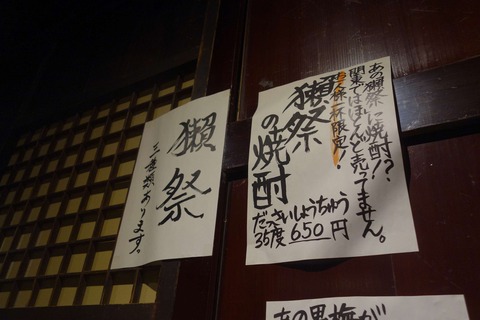 あの獺祭に焼酎??
関東ではほとんど売ってません。
お一人様一杯限定!
獺祭
の焼酎
だっさいしょうちゅう
35度 650円
獺祭
三種類あります。
あの黒梅が